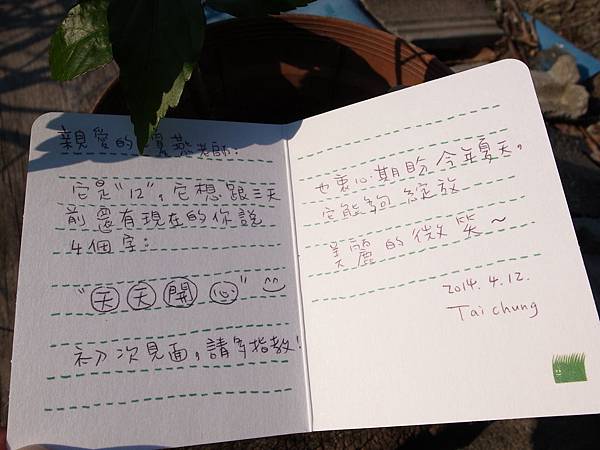 親愛的 燕老師：
它是"12"，它想跟三天
前還有現在的你說
4個字：
"天天開心"
初次見面，請多指教！
也衷心期盼今年夏天，
它能夠綻放
美麗的微笑～
2014.4.12.
Taichung